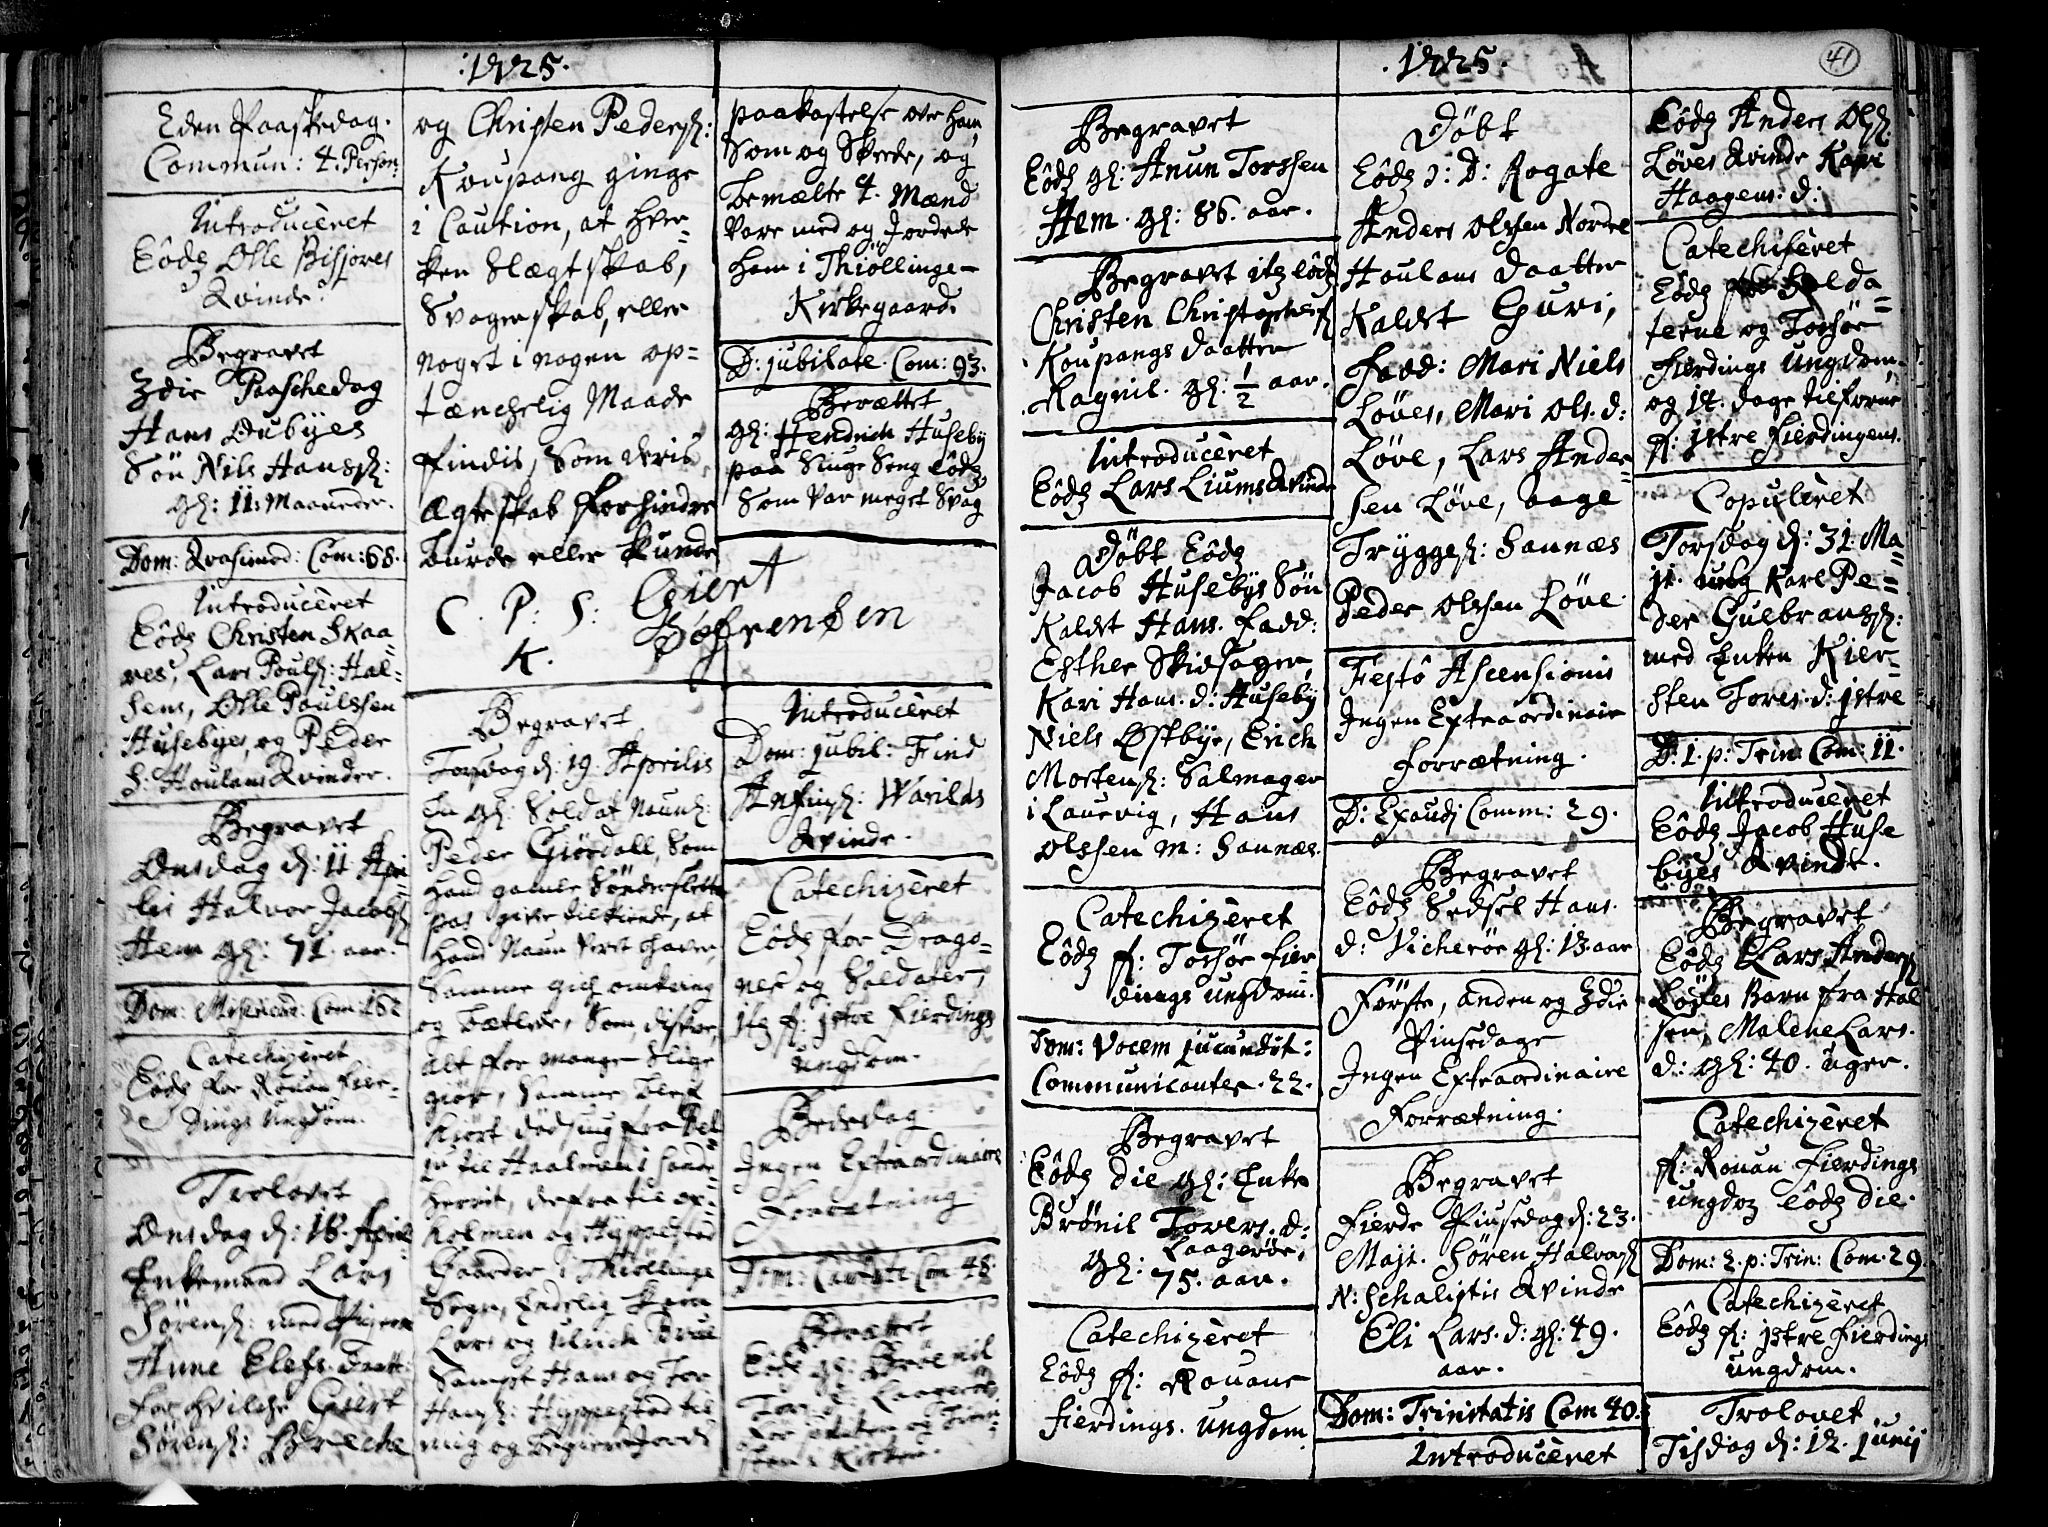 1725.
Eden Paaskedag.
Commun: 4. Person:
Introducèret
Eôdq Olle Bisjores
Qvinde.
Begravet
3die Paaschedag
Hans Dubÿes
Sön Nils Hansß:
gl: 11: Maaneder.
Dom: Qvasimod: Com: 68.
Introducèret
Eôdq Christen Skaa=
res, Lars Poulß: Hal=
sens, Olle Poulssen
Husebyes, og Peder
S: Houlans Qvinder.
Begravet
Onsdag d: 11 Apri=
lis Halvor Jacobß
Hem gl: 71. aar.
Dom: Misericord: Com: 162
Catechizèret
Eôdq for Rouan Fier=
dings Ungdom.
Trolovet
Onsdag d: 18. April
Enkemand Lars
Sörenß: med Pigen
Anne Elefs. Datt:
for hvilche Giert
Sörenß: Breche
og Christen Pederß:
Koupang ginge
i Caution, at hver=
ken Slægtskab,
Svogerskab, eller
noget i nogen op=
tænchelig Maade
findis, Som deris
Ægteskab forhindre
burde eller kunde
C. P: S: Giert
K. Söfrensen
Begravet
Torsdag d: 19. Aprilis
En gl: Soldat Naunl:
Peder Giördall, Som
hand gamle Sönderslette
pas giver tilkiende, at
hand Naun verit haver,
Samme gich omkring
og betlede, Som disver,
alt for mange Slige
giör, Samme blef
kiört dödsiug fra Vel=
ja til Haalmen i Sande=
herrit, derfra til or=
holmen og Hÿppestad
Gaarder i Thiöllinge
Sogn, Endelig kom
Lars og Ulrich Brue
Sampt Hans og Tor
Hansß: Hÿppestad til
mig og begierede Jords
paakastelse over ham,
Som og Skeede, og
bemælte 4. Mænd
vare med og Jordede
ham i Thiöllinge=
Kirkegaard.
D: jubilate. Com: 93.
Berættet
gl: Hendrich Huseby
paa Siuge Seng Eôdq,
Som var meget Svag
Introducèret
Dom: jubil: Find
Anfinß: Warilds
Qvinde.
Catechizèret
Eôdq for Drago=
ner og Soldater,
itq f: jstre Fierdings
Ungdom.
Bededag
Ingen Extraordinaire
Forretning
Dom: Cantate Com 48:
Berættet
Eôdq gl: Brönil
Tor: d: Laageröe
for Skiten og Fien=
sten i Kirken.
1725.
41
Begravet
Eôdq gl: Anun Torssen
Hem. gl: 86. aar.
Begravet itq Eôdq
Christen Christophersß
Koupangs Daatter
Magnil. gl: 1/2 aar.
Introducèret
Eôdq Lars Liums Qvinde
Döbt Eôdq
Jacob Husebÿs Sön
Kaldet Hans. Fadd:
Esther Skidsager,
Kari Hans. d: Huseby
Niels Østbÿe, Erich
Mortenß: Salmager
i Laurvig, Hans
Olssen M: Sannæs.
Catechizèret
Eôdq f: Torsöe Fier
dings Ungdom.
Dom: Vocem jucundit:
Communicanter. 22.
Begravet
Eôdq die gl: Enke
Brönil Tovers. d:
Laageröe,
gl: 75. aar.
Catechizèret
Eôdq f: Rouans
Fierdings. Ungdom.
Döbt
Eôdq J: D: Rogate
Anders Olssen Nordre
Houlans Daatter
Kaldet Guri,
Fadd: Mari Niels
Löves, Mari Ols. d:
Löve, Lars Ander=
sen Löve, Aage
Tryggesß: Sannæs
Peder Olssen Löve.
Festô Ascensionis
Ingen Extraordinair
Forrætning.
D: Exaudi Comm: 29.
Begravet
Eôdq Sedsel Hans.
d: Vicheröe gl: 13. aar
Förste, anden og 3die
Pinsedage
Ingen Extraordinaire
Forrætning.
Begravet
Fierde Pinsedag d: 23.
Maji. Sören Halvorß
N: Schalistis Qvinde
Eli Lars. d: gl: 49.
aar.
Dom: Trinitatis Com 40.
Introducèret
Eôdq Anders Olß:
Löves Qvinde Kari
Haagens. d:
Catechisèret
Eôdq for Solda=
terne og Torsöe
Fierdings Ungdom,
og 14. dage tilforne
f: jstre Fierdingens.
Copulèret
Torsdag d: 31. Ma=
ji. ung Karl Pe=
der Gulbransß:
med Enken Kier=
sten Tores. d: jstre
D: 1. p: Trin: Com: 11.
Introducèret
Eôdq Jacob Huse
byes Qvinde.
Begravet
Eôdq Lars Andersß
Löves Barn fra Hal
sen, Malene Lars.
d: gl: 40. uger.
Catechizèret
f: Rouan Fierdings
ungdoz Eôdq die.
Dom: 2. p: Trin: Com. 29
Catechizèret
Eôdq f: jstre Fierdings
ungdom.
Trolovet
Tisdag d: 12. junij